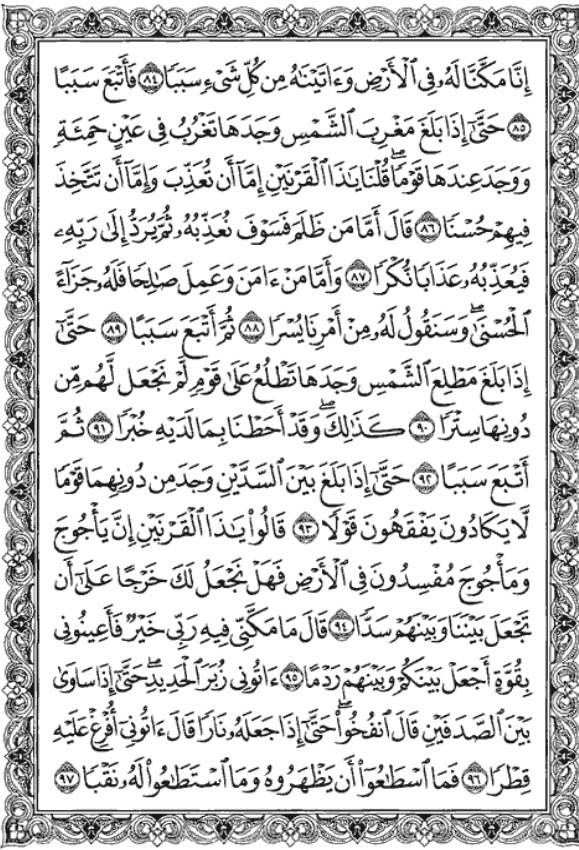 إِنَّا مَكَّنَّا لَهُۥ فِي ٱلْأَرْضِ وَءَاتَيْنَٰهُ مِن كُلِّ شَيْءٍ سَبَبًا ٨٤ فَأَتْبَعَ سَبَبًا
٨٥ حَتَّىٰٓ إِذَا بَلَغَ مَغْرِبَ ٱلشَّمْسِ وَجَدَهَا تَغْرُبُ فِي عَيْنٍ حَمِئَةٍ
وَوَجَدَ عِندَهَا قَوْمًا ۗ قُلْنَا يَٰذَا ٱلْقَرْنَيْنِ إِمَّآ أَن تُعَذِّبَ وَإِمَّآ أَن تَتَّخِذَ
فِيهِمْ حُسْنًا ٨٦ قَالَ أَمَّا مَن ظَلَمَ فَسَوْفَ نُعَذِّبُهُۥ ثُمَّ يُرَدُّ إِلَىٰ رَبِّهِۦ
فَيُعَذِّبُهُۥ عَذَابًا نُّكْرًا ٨٧ وَأَمَّا مَنْ ءَامَنَ وَعَمِلَ صَٰلِحًا فَلَهُۥ جَزَآءً
ٱلْحُسْنَىٰ ۖ وَسَنَقُولُ لَهُۥ مِنْ أَمْرِنَا يُسْرًا ٨٨ ثُمَّ أَتْبَعَ سَبَبًا ٨٩ حَتَّىٰٓ
إِذَا بَلَغَ مَطْلِعَ ٱلشَّمْسِ وَجَدَهَا تَطْلُعُ عَلَىٰ قَوْمٍ لَّمْ نَجْعَل لَّهُم مِّن
دُونِهَا سِتْرًا ٩٠ كَذَٰلِكَ ۖ وَقَدْ أَحَطْنَا بِمَا لَدَيْهِ خُبْرًا ٩١ ثُمَّ
أَتْبَعَ سَبَبًا ٩٢ حَتَّىٰٓ إِذَا بَلَغَ بَيْنَ ٱلسَّدَّيْنِ وَجَدَ مِن دُونِهِمَا قَوْمًا
لَّا يَكَادُونَ يَفْقَهُونَ قَوْلًا ٩٣ قَالُوا۟ يَٰذَا ٱلْقَرْنَيْنِ إِنَّ يَأْجُوجَ
وَمَأْجُوجَ مُفْسِدُونَ فِي ٱلْأَرْضِ فَهَلْ نَجْعَلُ لَكَ خَرْجًا عَلَىٰٓ أَن
تَجْعَلَ بَيْنَنَا وَبَيْنَهُمْ سَدًّا ٩٤ قَالَ مَا مَكَّنِّي فِيهِ رَبِّي خَيْرٌ فَأَعِينُونِي
بِقُوَّةٍ أَجْعَلْ بَيْنَكُمْ وَبَيْنَهُمْ رَدْمًا ٩٥ ءَاتُونِي زُبَرَ ٱلْحَدِيدِ ۖ حَتَّىٰٓ إِذَا سَاوَىٰ
بَيْنَ ٱلصَّدَفَيْنِ قَالَ ٱنفُخُوا۟ ۖ حَتَّىٰٓ إِذَا جَعَلَهُۥ نَارًا قَالَ ءَاتُونِيٓ أُفْرِغْ عَلَيْهِ
قِطْرًا ٩٦ فَمَا ٱسْطَٰعُوٓا۟ أَن يَظْهَرُوهُ وَمَا ٱسْتَطَٰعُوا۟ لَهُۥ نَقْبًا ٩٧